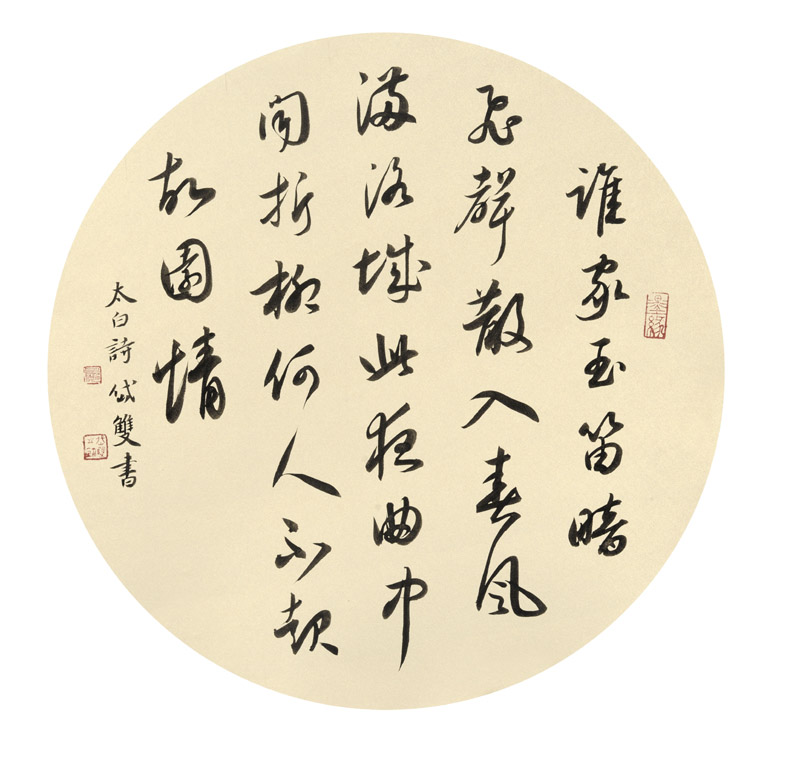 誰家玉笛暗
飛聲散入春風
滿洛城此夜曲中
聞折柳何人不起
故園情
太白詩 岱雙書